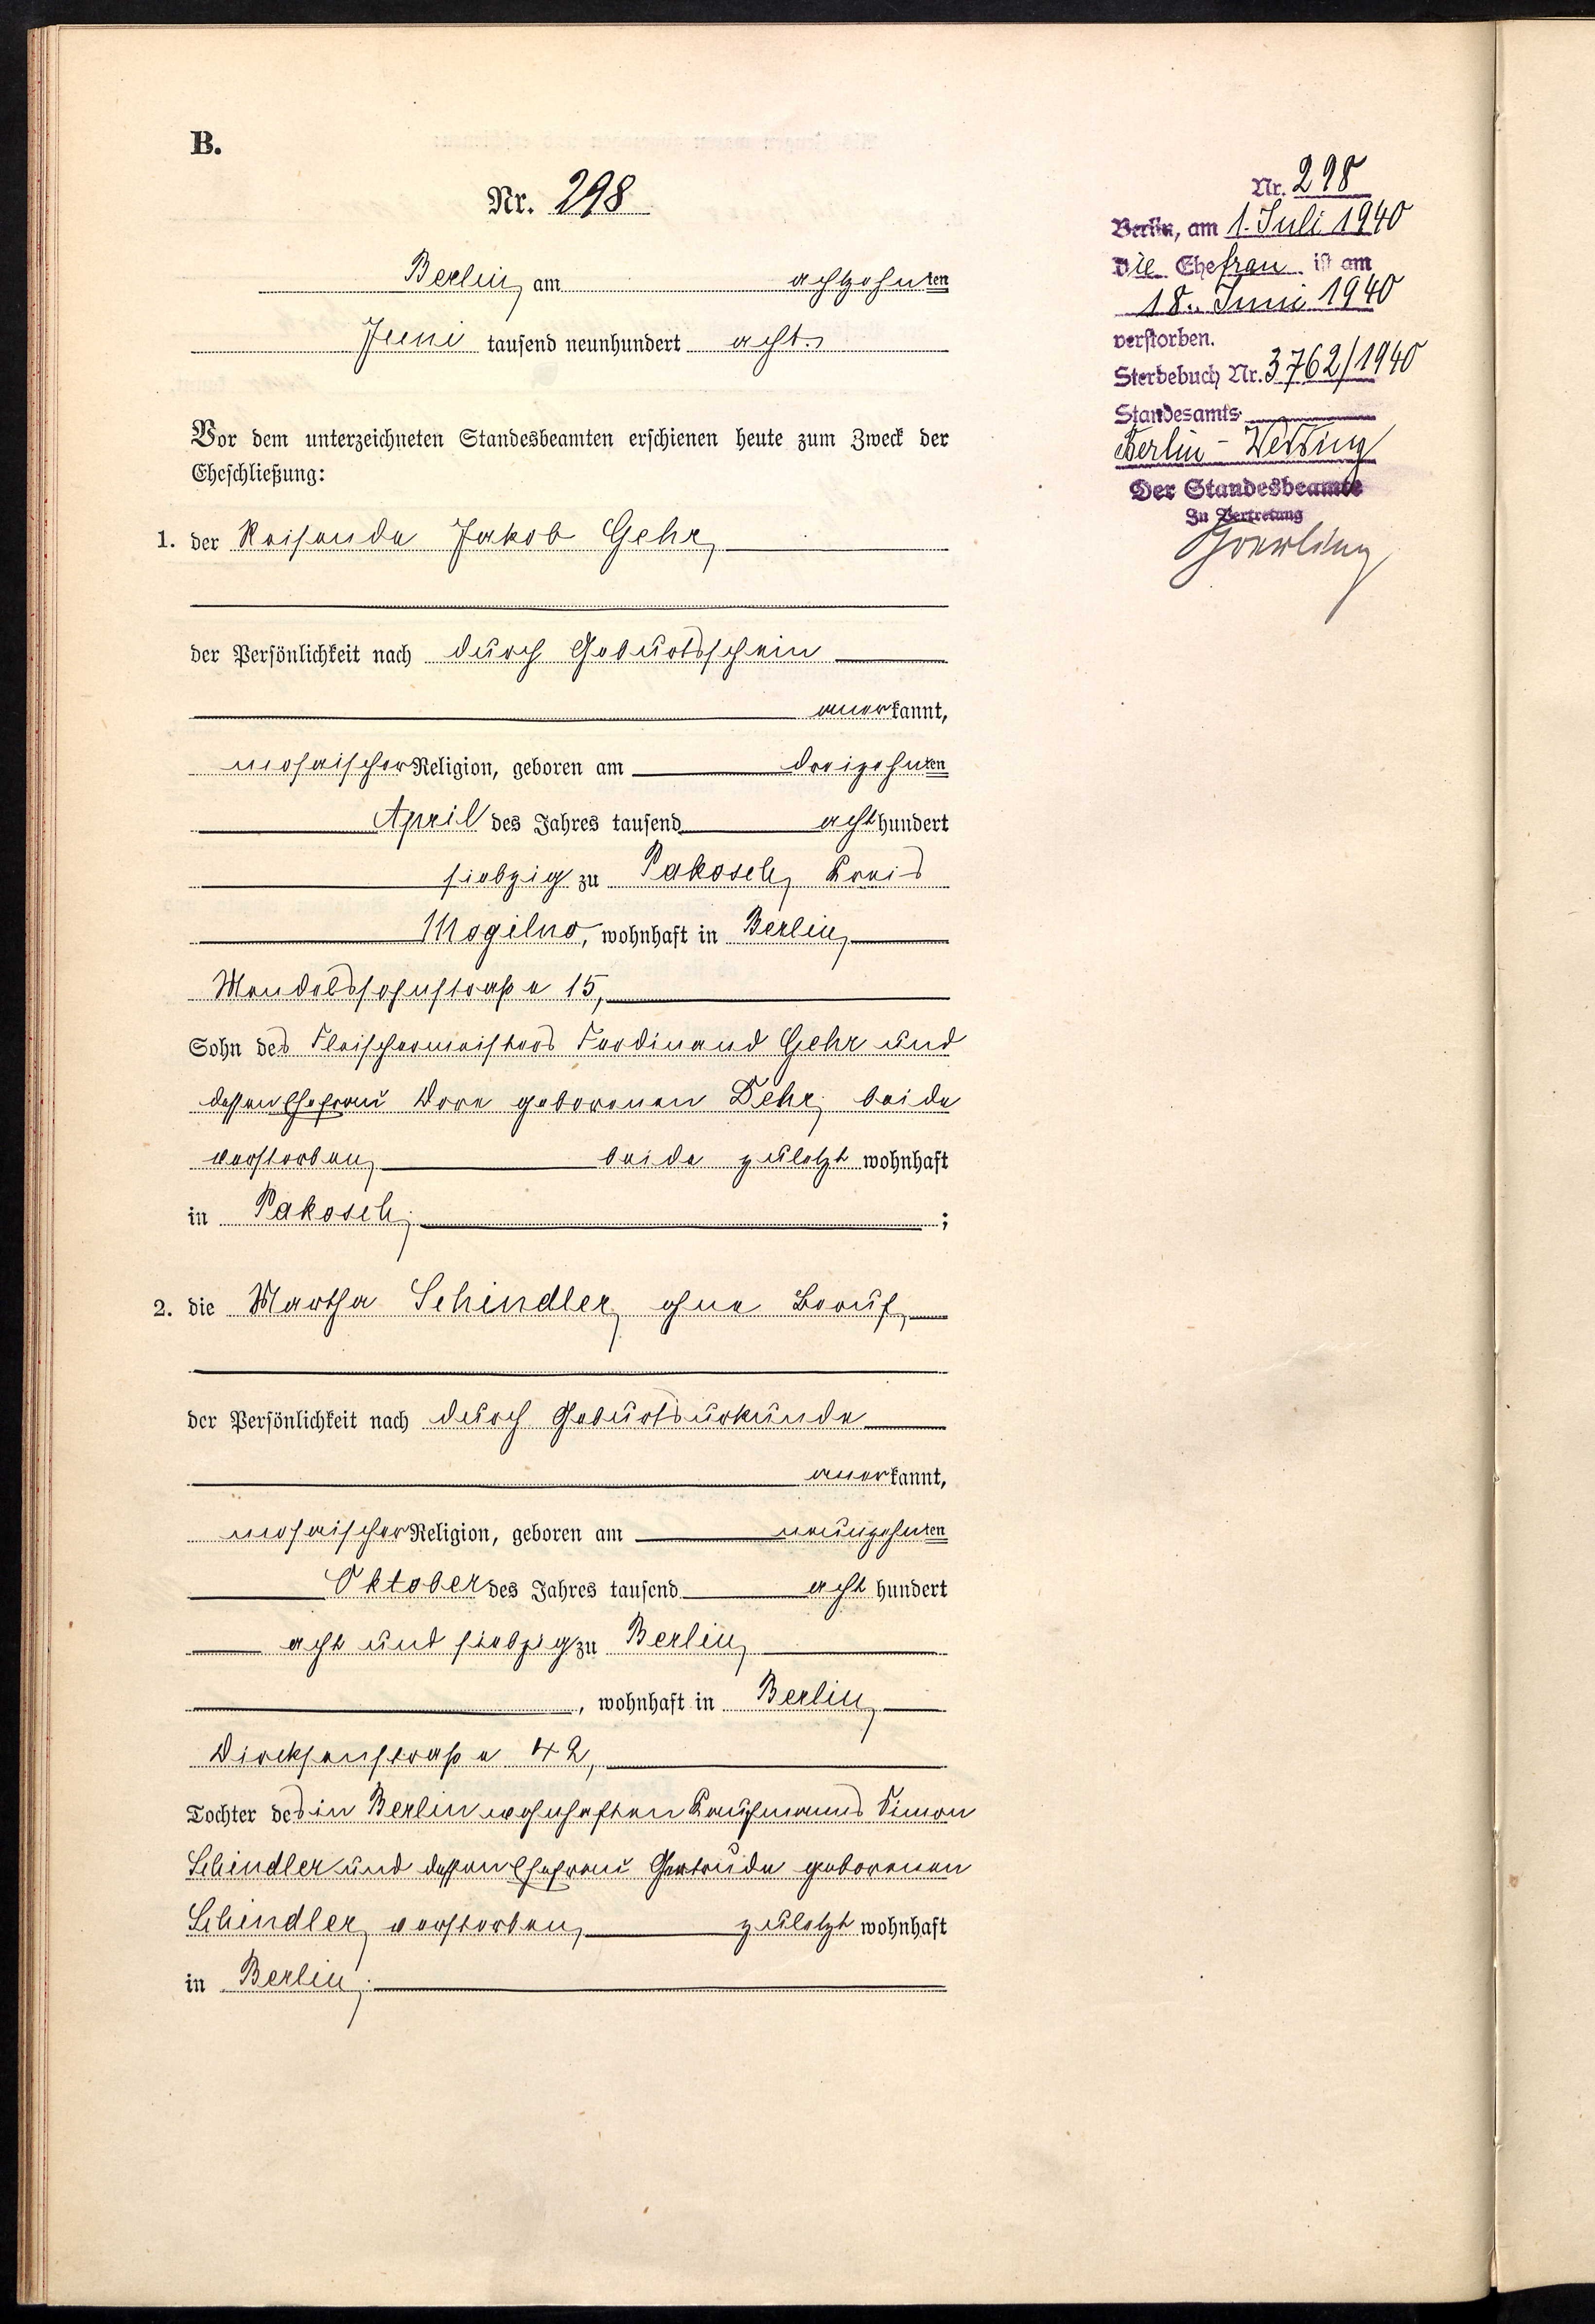 B.
Nr. 298
Berlin, am achtzehnten
Juni tausend neunhundert acht.
Vor dem unterzeichneten Standesbeamten erschienen heute zum Zweck der
Eheschließung:
1. der Reisende Jakob Gehr,
der Persönlichkeit nach durch Geburtsschein
anerkannt,
mosaischer Religion, geboren am dreizehnten
April des Jahres tausend achthundert
siebzig zu Pakosch, Kreis
Mogilno, wohnhaft in Berlin,
Mendelssohnstraße 15,
Sohn des Fleischermeisters Ferdinand Gehr und
dessen Ehefrau Dore geborenen Dehr, beide
verstorben, beide zuletzt wohnhaft
in Pakosch; ;
2. die Martha Schindler, ohne Beruf,
der Persönlichkeit nach durch Geburtsurkunde
anerkannt,
mosaischer Religion, geboren am neunzehnten
Oktober des Jahres tausend acht hundert
acht und siebzig zu Berlin,
, wohnhaft in Berlin,
Dircksenstraße 42,
Tochter des in Berlin wohnhaften Kaufmanns Simon
Schindler und dessen Ehefrau Gertrude geborenen
Schindler, verstorben, zuletzt wohnhaft
in Berlin.
Nr. 298
Berlin, am 1. Juli 1940
Die Ehefrau ist am
18. Juni 1940
verstorben.
Sterbebuch Nr. 3762/1940
Standesamts
Berlin-Wedding
Der Standesbeamte
In Vertretung